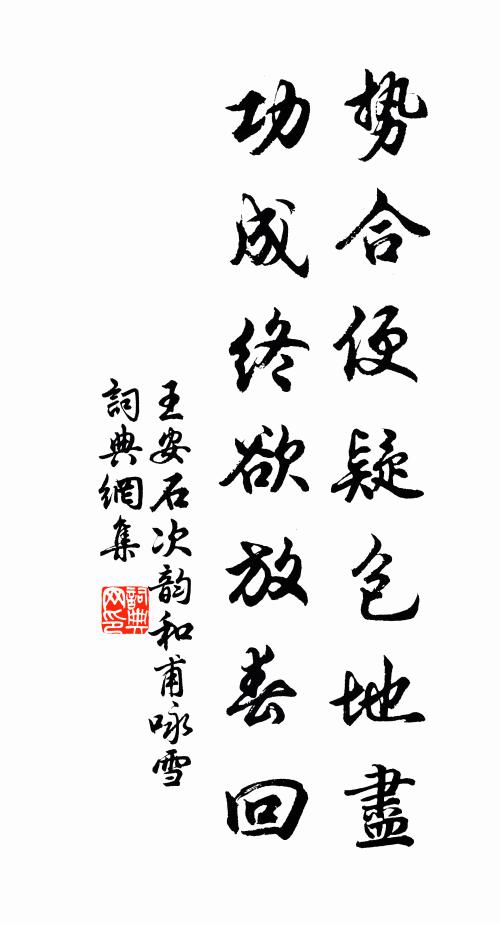 势合便疑包地盡
功成终欲放春回
王安石次韵和甫咏雪
詞典網集
詞典网印